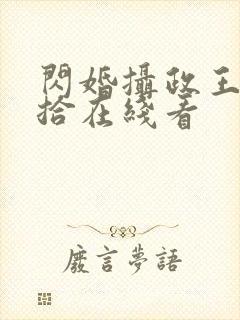 閃婚攝政王
拾在綫看
廢言夢語